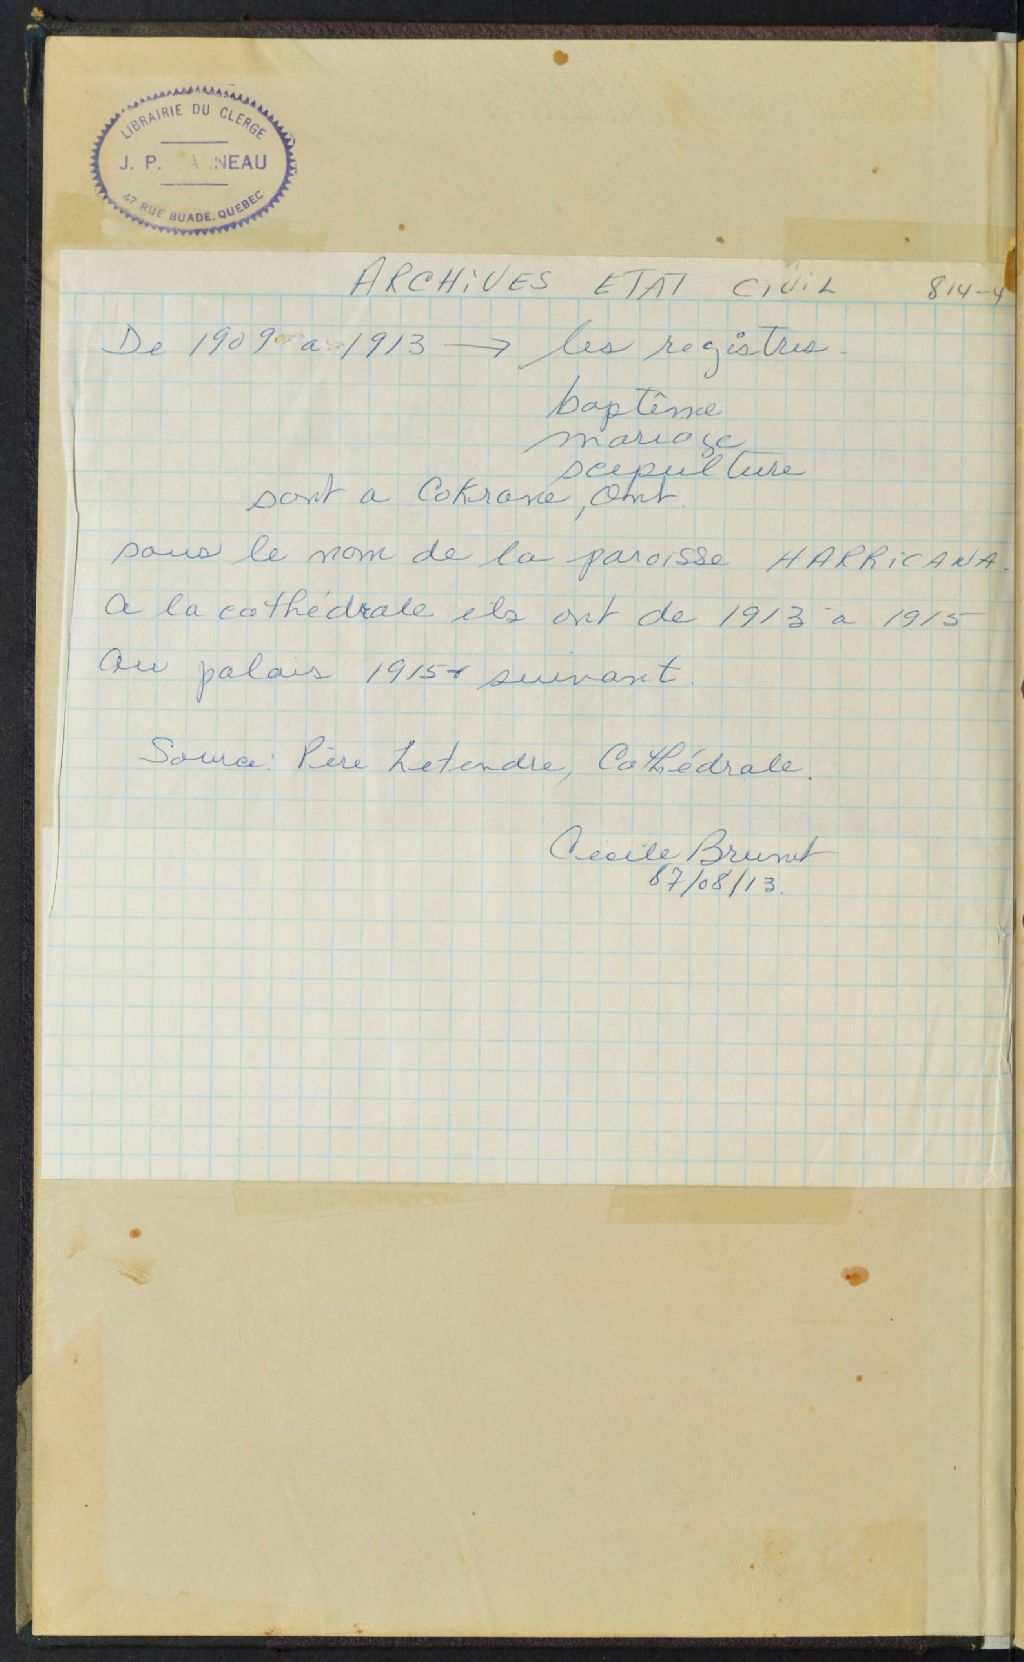 LIBRAIRIE DU CLERGE
J. P. NEAU
47 RUE BUADE, QUEBEC
ARCHiVES ETAT CiViL 814-4
De 1909 a 1913 → les registres.
baptême
mariage
scepulture
sont a Cokrane, Ont.
sous le nom de la paroisse HARRiCANA.
a la cathédrale ils ont de 1913 a 1915
au palais 1915 suivant.
Source: Père Letendre, Cathédrale.
Cécile Brunet
87/08/13.